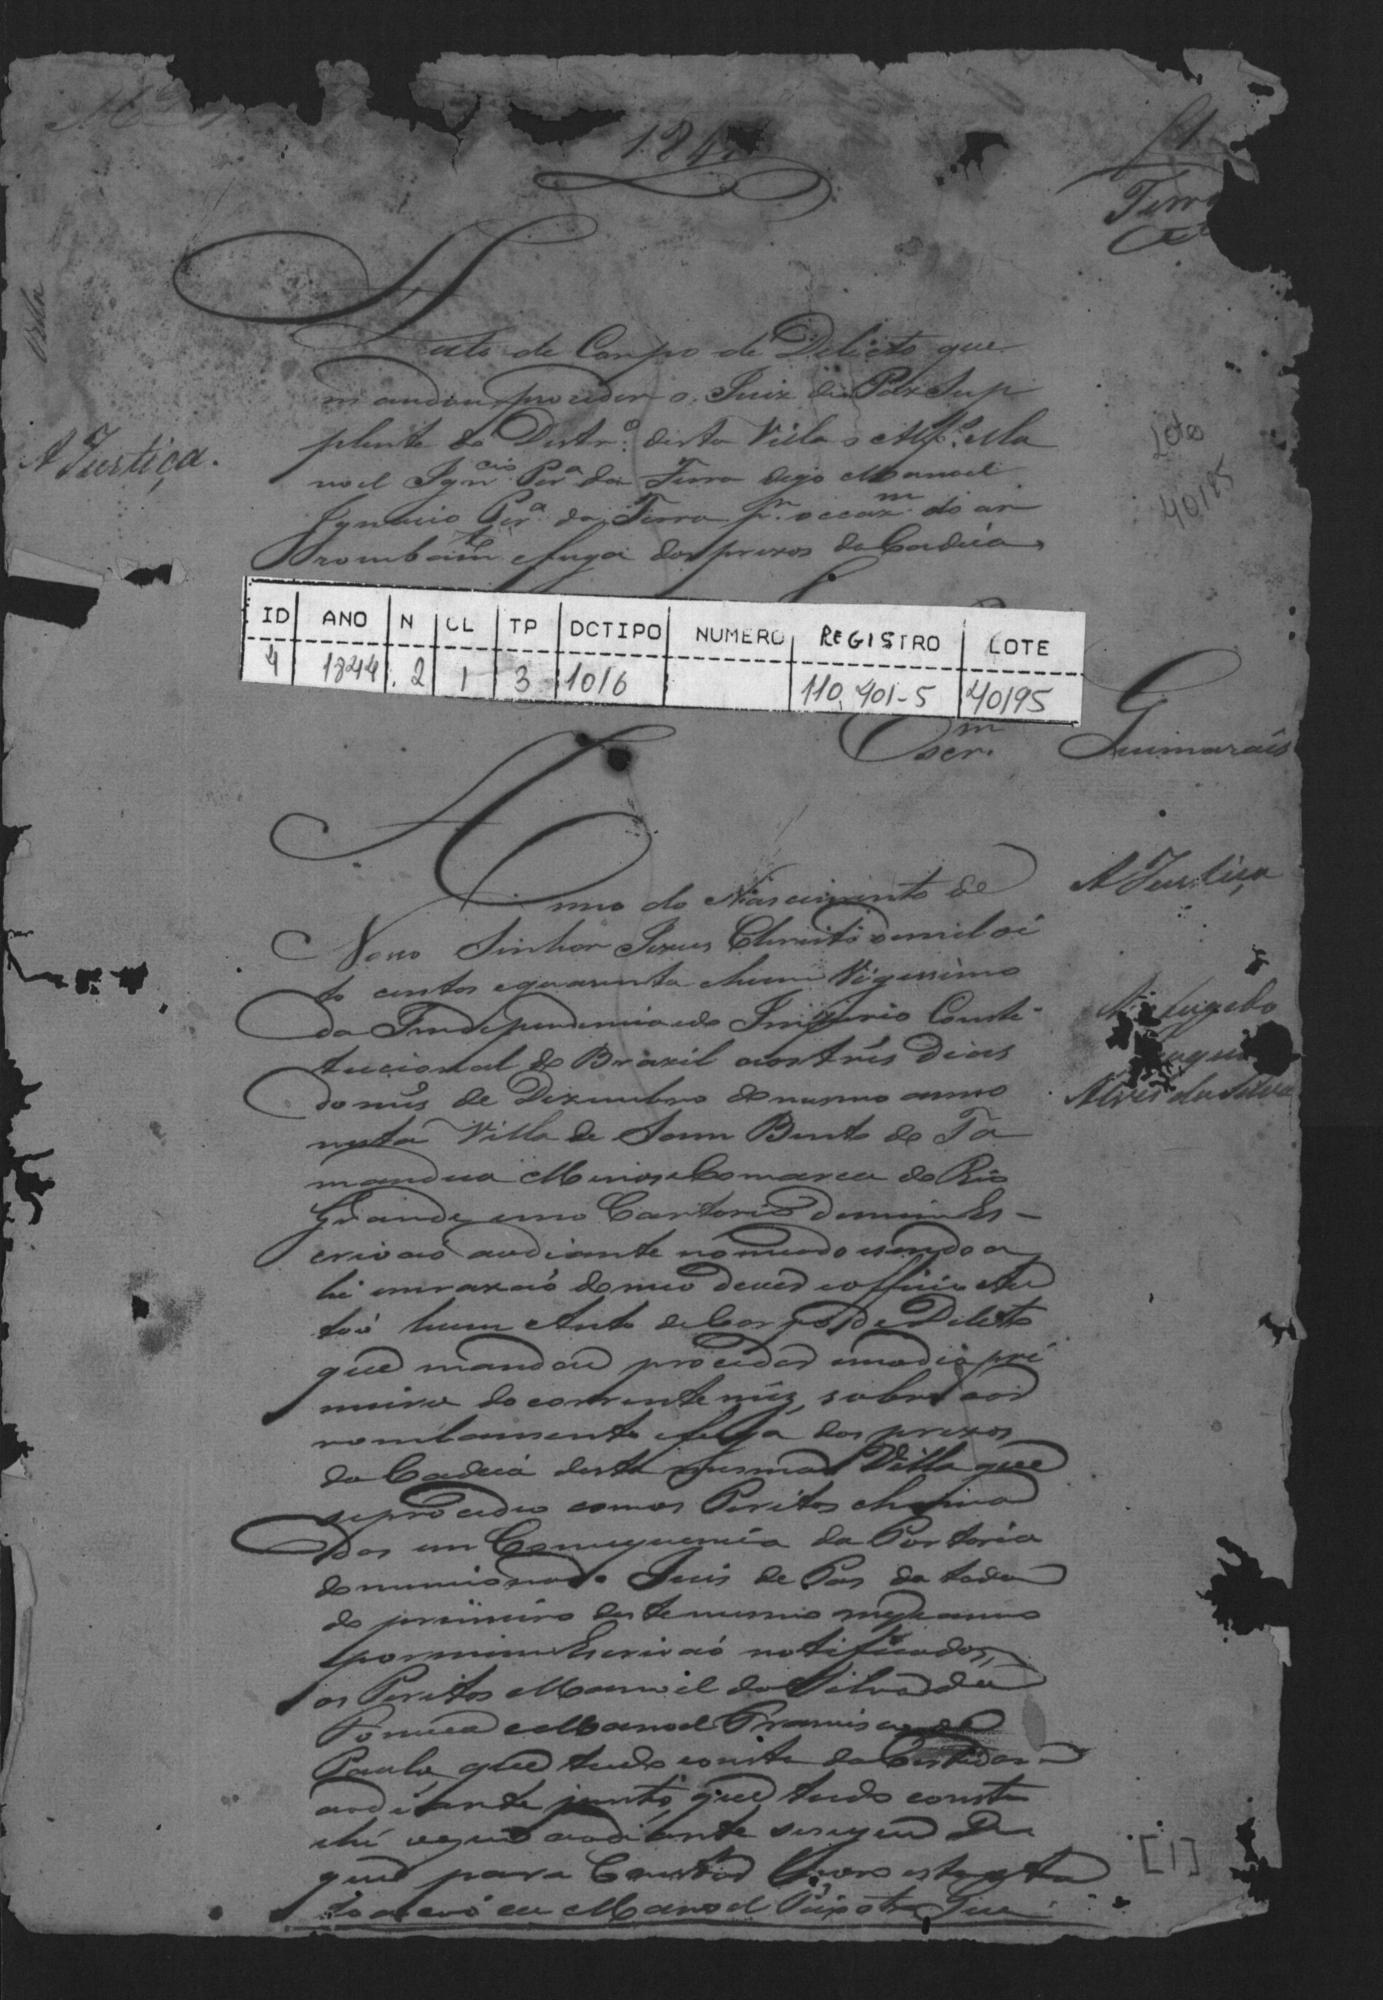 184
f 1
Terra
A Justiça.
Auto de Corpo de Delicto que
mandou proceder o Juiz de Paz Sup
plente do Distr.º desta Villa o Alf.º Ma
noel Ign.cio Per.a da Terra digo Manoel
Ignacio Per.a da Terra p.r occaz.m do ar
rombam.to e fuga dos prezos da Cadeia
Loto
40195
ID ANO N CL TP DCTIPO NUMERO REGISTRO LOTE
4 1844 2 1 3 1016 110,401-5 40195
Escr.m Guimarães
Anno do Nascimento de
Nosso Senhor Jezus Christo de mil oi
to centos e quarenta e hum Vigessimo
da Independencia e do Imperio Consti-
tucional do Brazil aos três dias
do mês de Dezembro do mesmo anno
nesta Villa de Sam Bento do Ta
mandua Minas e Comarca do Rio
Grande em o Cartorio de mim Es-
crivaõ aodiante nomeado e sendo a
hi em razaõ de meo dever e officio Au
toó hum Auto de Corpo de Delicto
que mandou proceder em o dia pri
meiro do corrente mês, sobre o ar
rombamento e fuga dos prezos
da Cadeia desta mesma Villa que
se procedeo com os Peritos chama
dos em Consequencia da Portaria
do mencionado Juis de Pas datada
do primeiro deste mesmo mes e anno
e por mim Escrivaõ notificados
os Peritos Manoel da Silva da
Fonceca e Manoel Francisco de
Paula que tudo consta da Certidaõ
aodiante junto, que tudo consta
e hé o que aodiante se segue De
que para Constar Lavro esta
eu Manoel
A Justiça
Alves da Silva
[1]